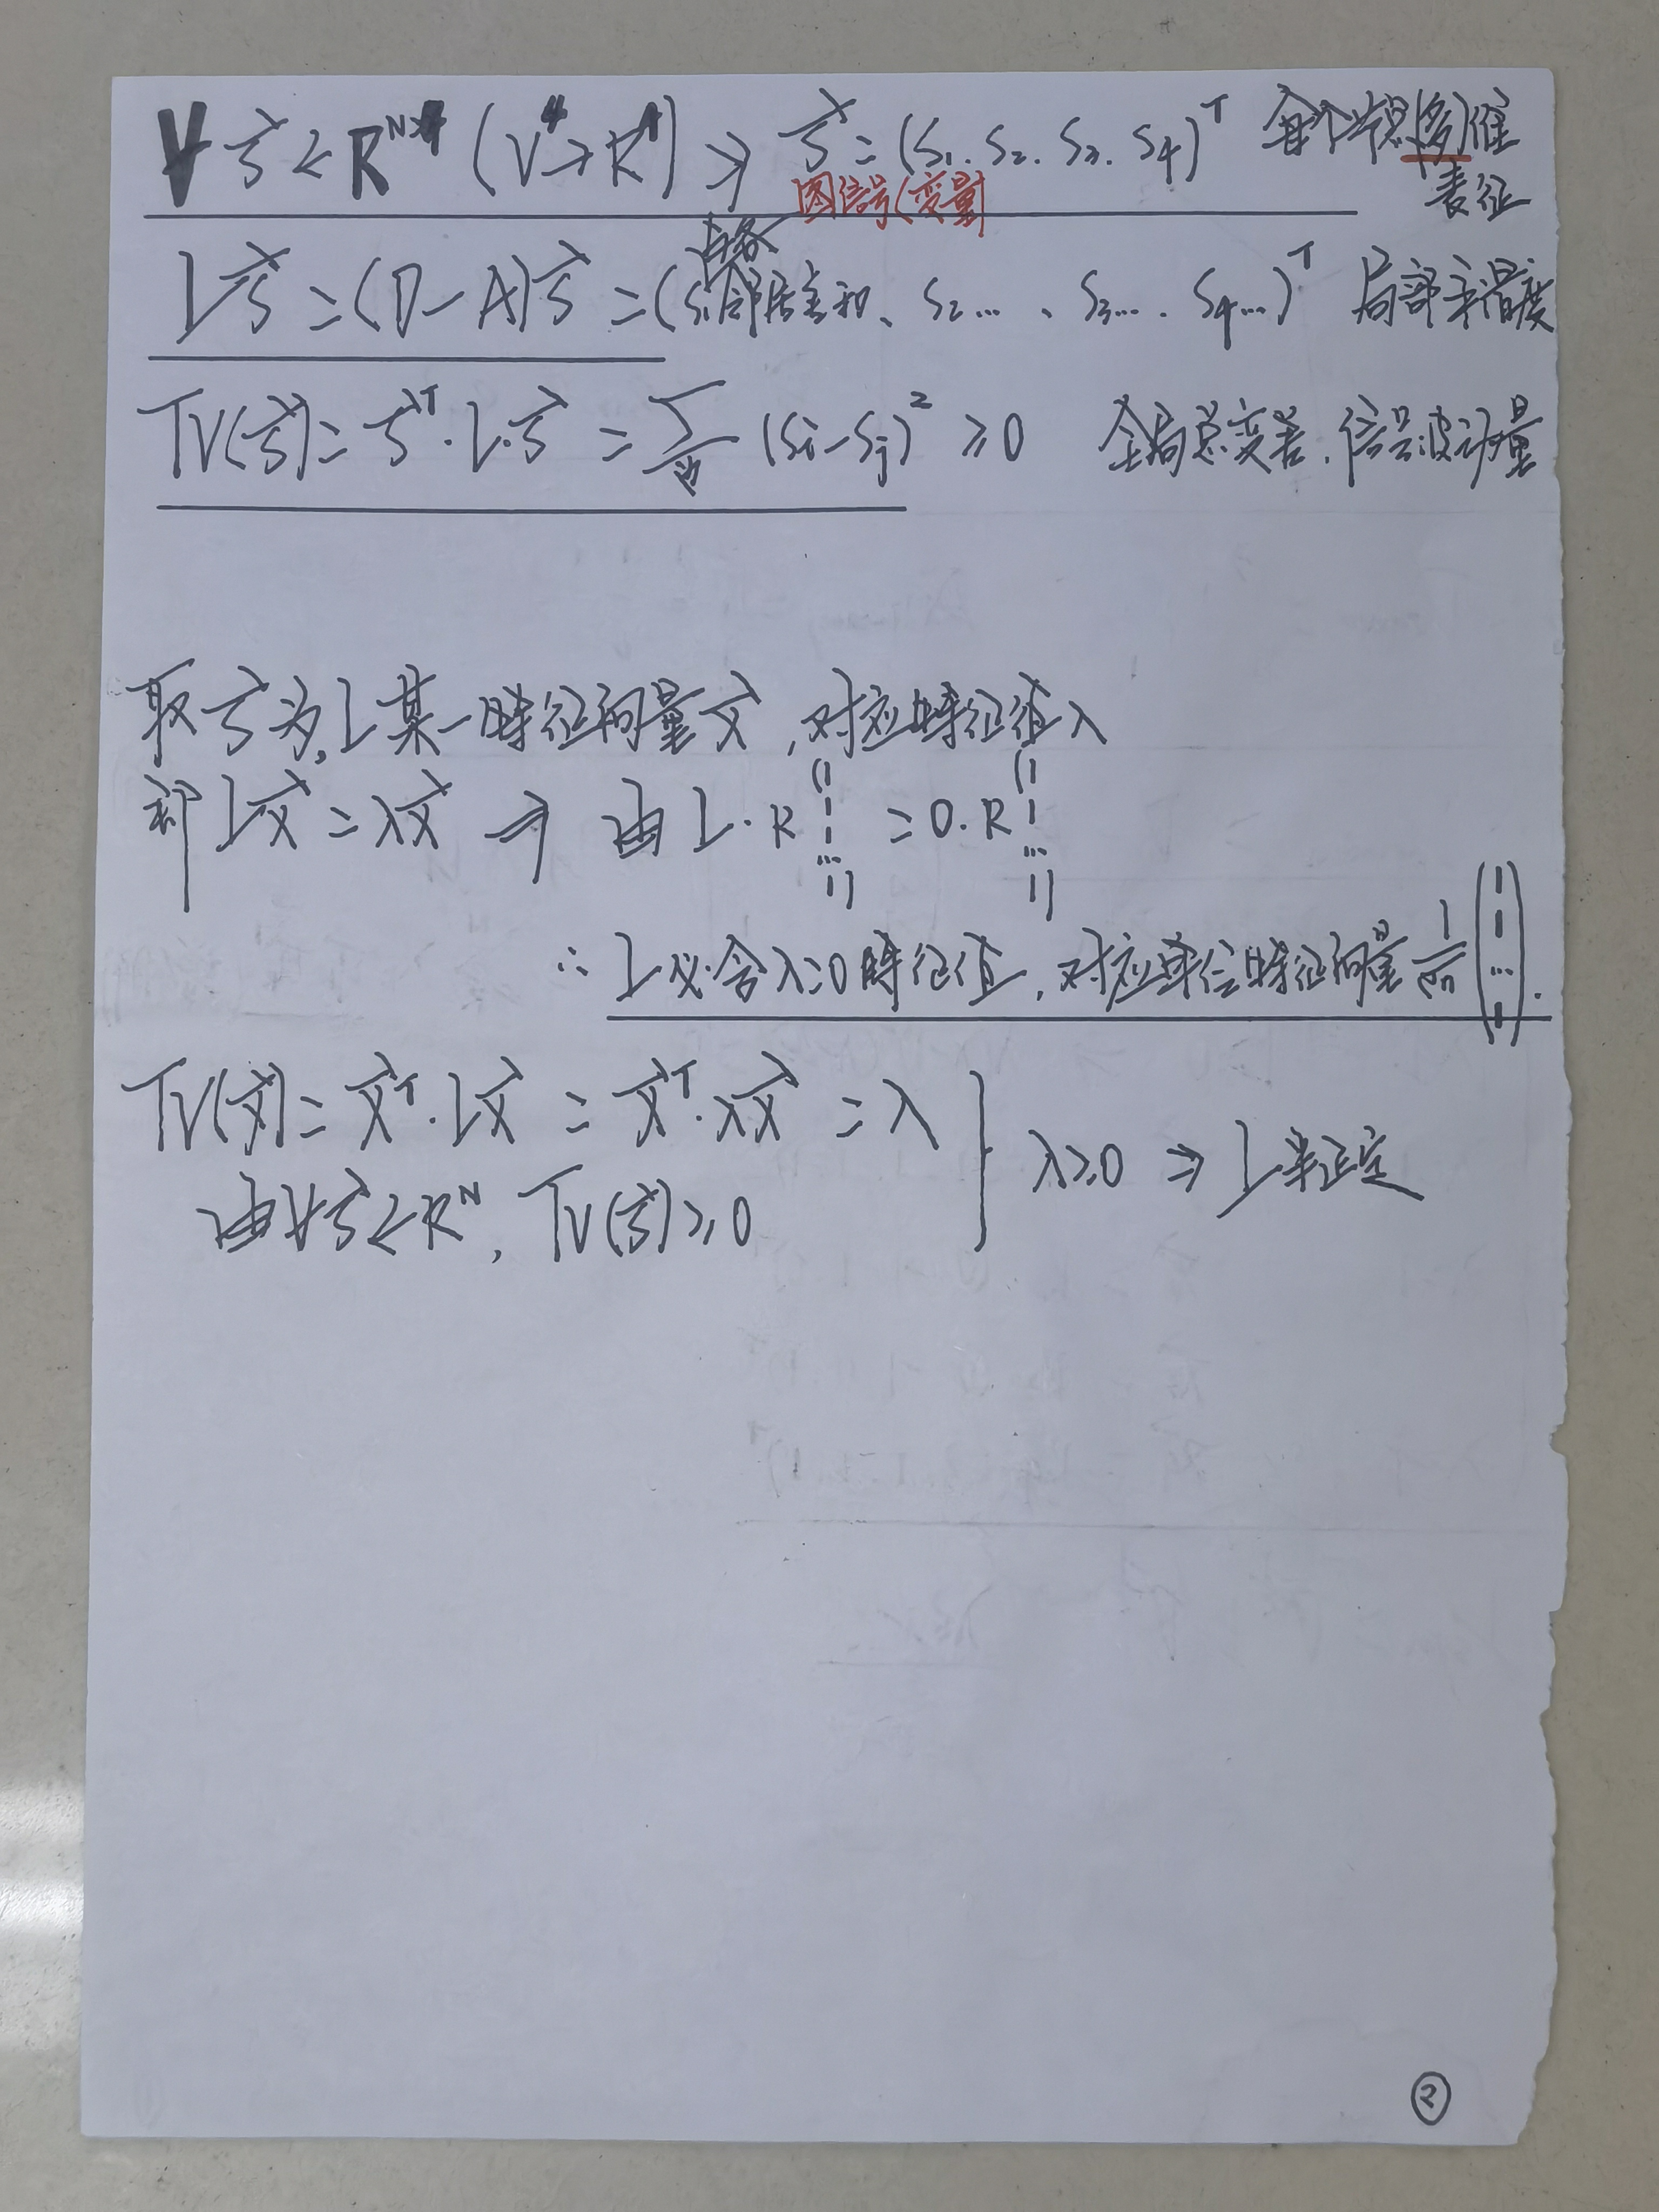 ∀ s⃗ ∈ R^N (V→R) ⇒ s⃗ = (s₁. s₂. s₃. s₄)^T 每个节点(多)维
图信号(变量) 表征
与各
Ls⃗ = (D-A)s⃗ = (s₁邻居差和、s₂…、s₃…. s₄…)^T 局部平滑度
TV(s⃗) = s⃗^T·L·s⃗ = Σ (si-sj)² ≥0 全局总变差,信号波动量
取s⃗为L某一特征向量x⃗,对应特征值λ
即 Lx⃗ = λx⃗ ⇒ 由 L·R(1 1 1 … 1) = 0·R(1 1 1 … 1)
∴ L必含λ=0特征值,对应单位特征向量 1/√n (1 1 … 1).
TV(x⃗) = x⃗^T·Lx⃗ = x⃗^T·λx⃗ = λ
由∀s⃗∈R^N, TV(s⃗)≥0 } λ≥0 ⇒ L半正定
②